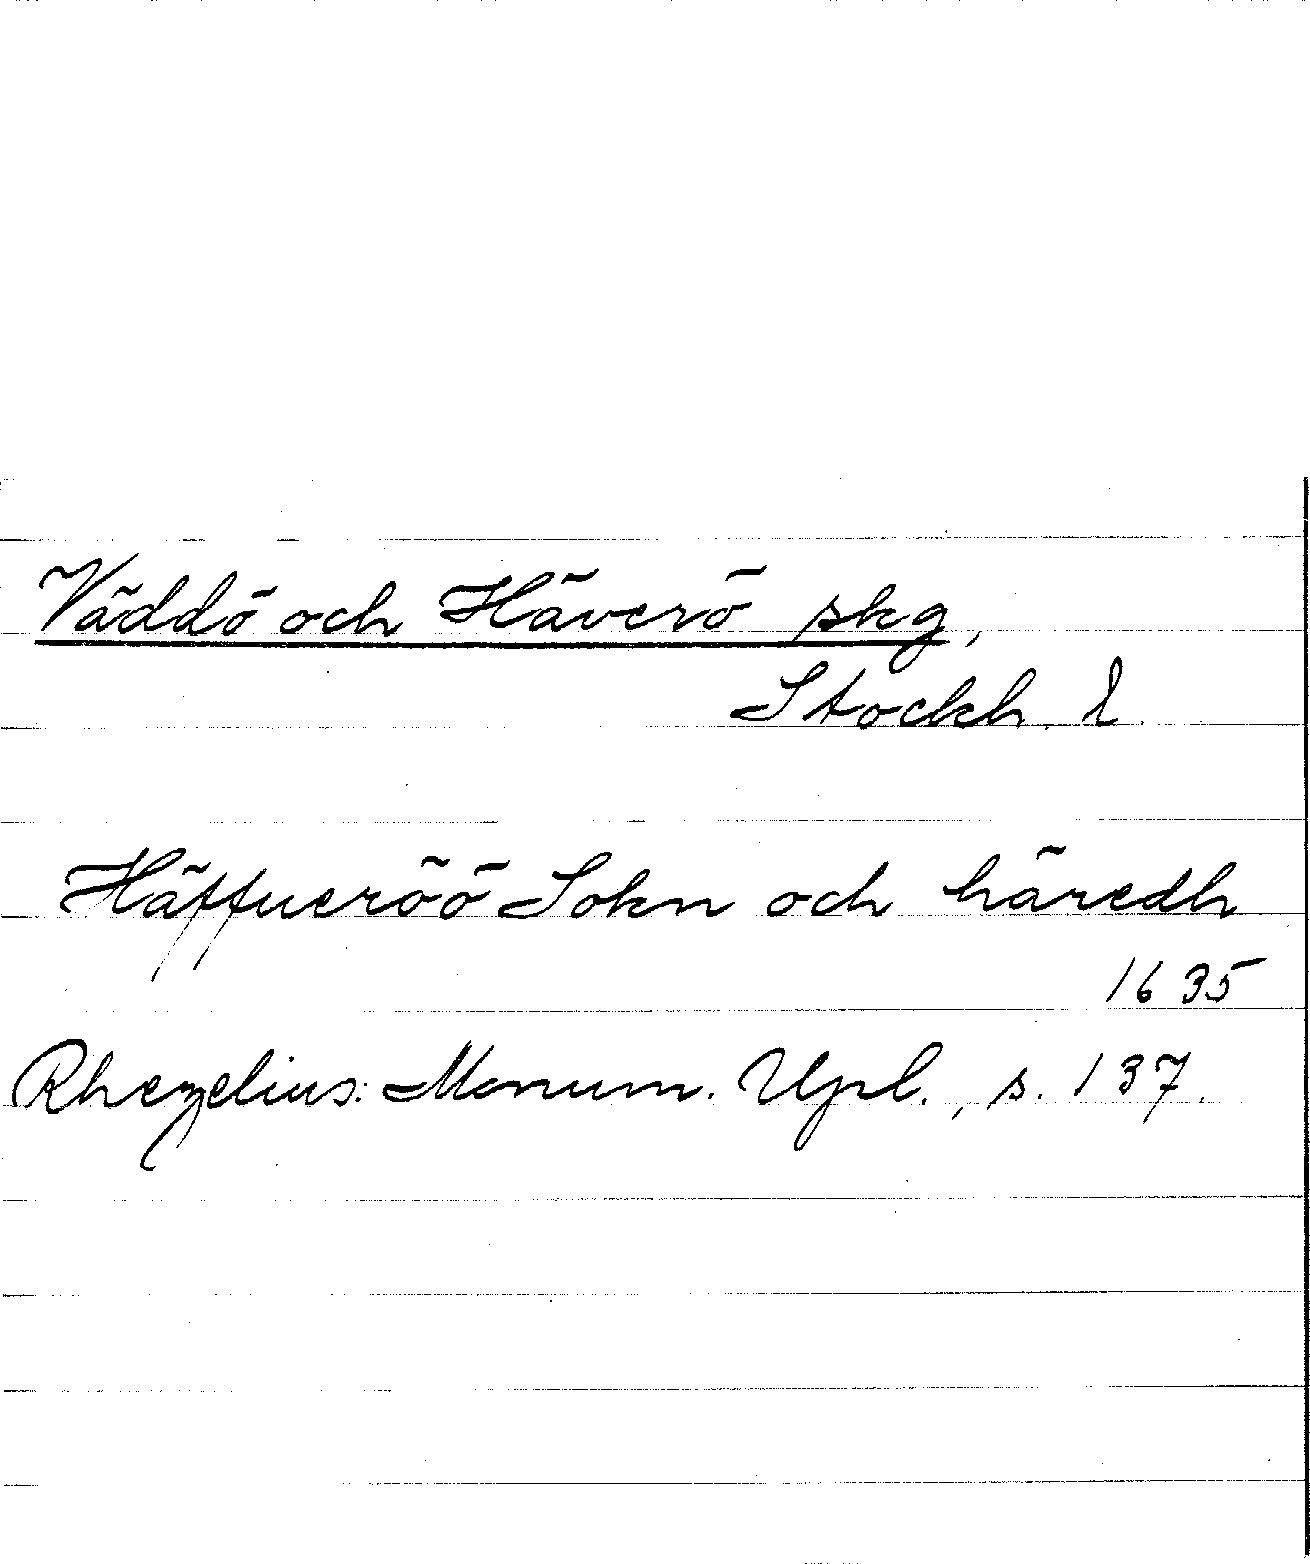 Väddö och Häverö skg,
Stockh. l
Häffueröö Sokn och häredh
1635
Rhezelius: Monum. Upl., s. 137.